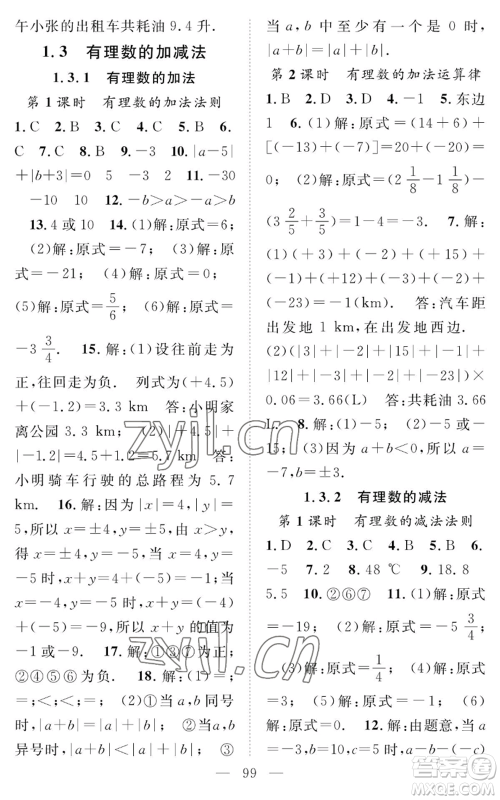 午小张的出租车共耗油 9.4 升.
1.3 有理数的加减法
1.3.1 有理数的加法
第 1 课时 有理数的加法法则
1.C 2.B 3.C 4.C 5.B 6.
C 7.B 8.A 9.-3 10.|a-5|
+|b+3|=0 5 -3 2 11.-30
-10 10 12.-b>a>-a>b
13.4 或 10 14.(1)解:原式=6;
(2)解:原式=0; (3)解:原式
=-21; (4)解:原式=-13;
(5)解:原式=5/6; (6)解:原式=
-3 3/4. 15.解:(1)设往前走为
正,往回走为负. 列式为(+4.5)
+(-1.2)=3.3 km 答:小明家
离公园 3.3 km; (2)|+4.5|+
|-1.2|=4.5+1.2=5.7 答:
小明骑车行驶的总路程为 5.7
km. 16.解:因为|x|=4,|y|
=5,所以x=±4,y=±5,因为x>
y,所以x=4,y=-5 或 x=-4,y=
-5.当x=4,y=-5 时,x+y=4+
(-5)=-1;当x=-4,y=-5 时,
x+y=-4+(-5)=-4
+(-5)=-9,所以x+y的值为
-1 或-9. 17.解:①③为正;
②④⑤⑥为负. 18.解:(1)=;
=;<;<; (2)①当a,b同号
时,|a+b|=|a|+|b|; ②当a,b
异号时,|a+b|<|a|+|b|; ③
当a,b中至少有一个为 0 时,
|a+b|=|a|+|b|.
第 2 课时 有理数的加法运算律
1.B 2.D 3.D 4.-1 5.东边
1 6.(1)解:原式=(14+6)+
[(-13)+(-7)]=20+(-20)=
0; (2)解:原式=(2 1/8-1 1/8)-
(3 2/5+3/5)=1-4=-3. 7.解:
(1)(+3)+(-2)+(+15)+
(-1)+(+12)+(+3)+(-2)+
(-23)=-1(km). 答:汽车距
出发地 1 km,在出发地西边.
(2)(|3|+|-2|+|+15|+|-1|+
|12|+|+3|+|-2|+|-23|)×
0.06=3.66(L) 答:共耗油
3.66 L. 8.解:由题意,得a=±5,
b=±2.因为a+b<0,所以a+b=
-7,b=±3.
1.3.2 有理数的减法
第 1 课时 有理数的减法法则
1.D 2.C 3.C 4.B 5.B 6.
-5 7.2 8.48 ℃ 9.18.8
5.5 10.②⑥⑦ 11.(1)解:原式
=-19; (2)解:原式=-5 3/4;
(3)解:原式=1/4; (4)解:原式=
-3.1. 12.解:由题意,当a
=-3,b=-10,c=